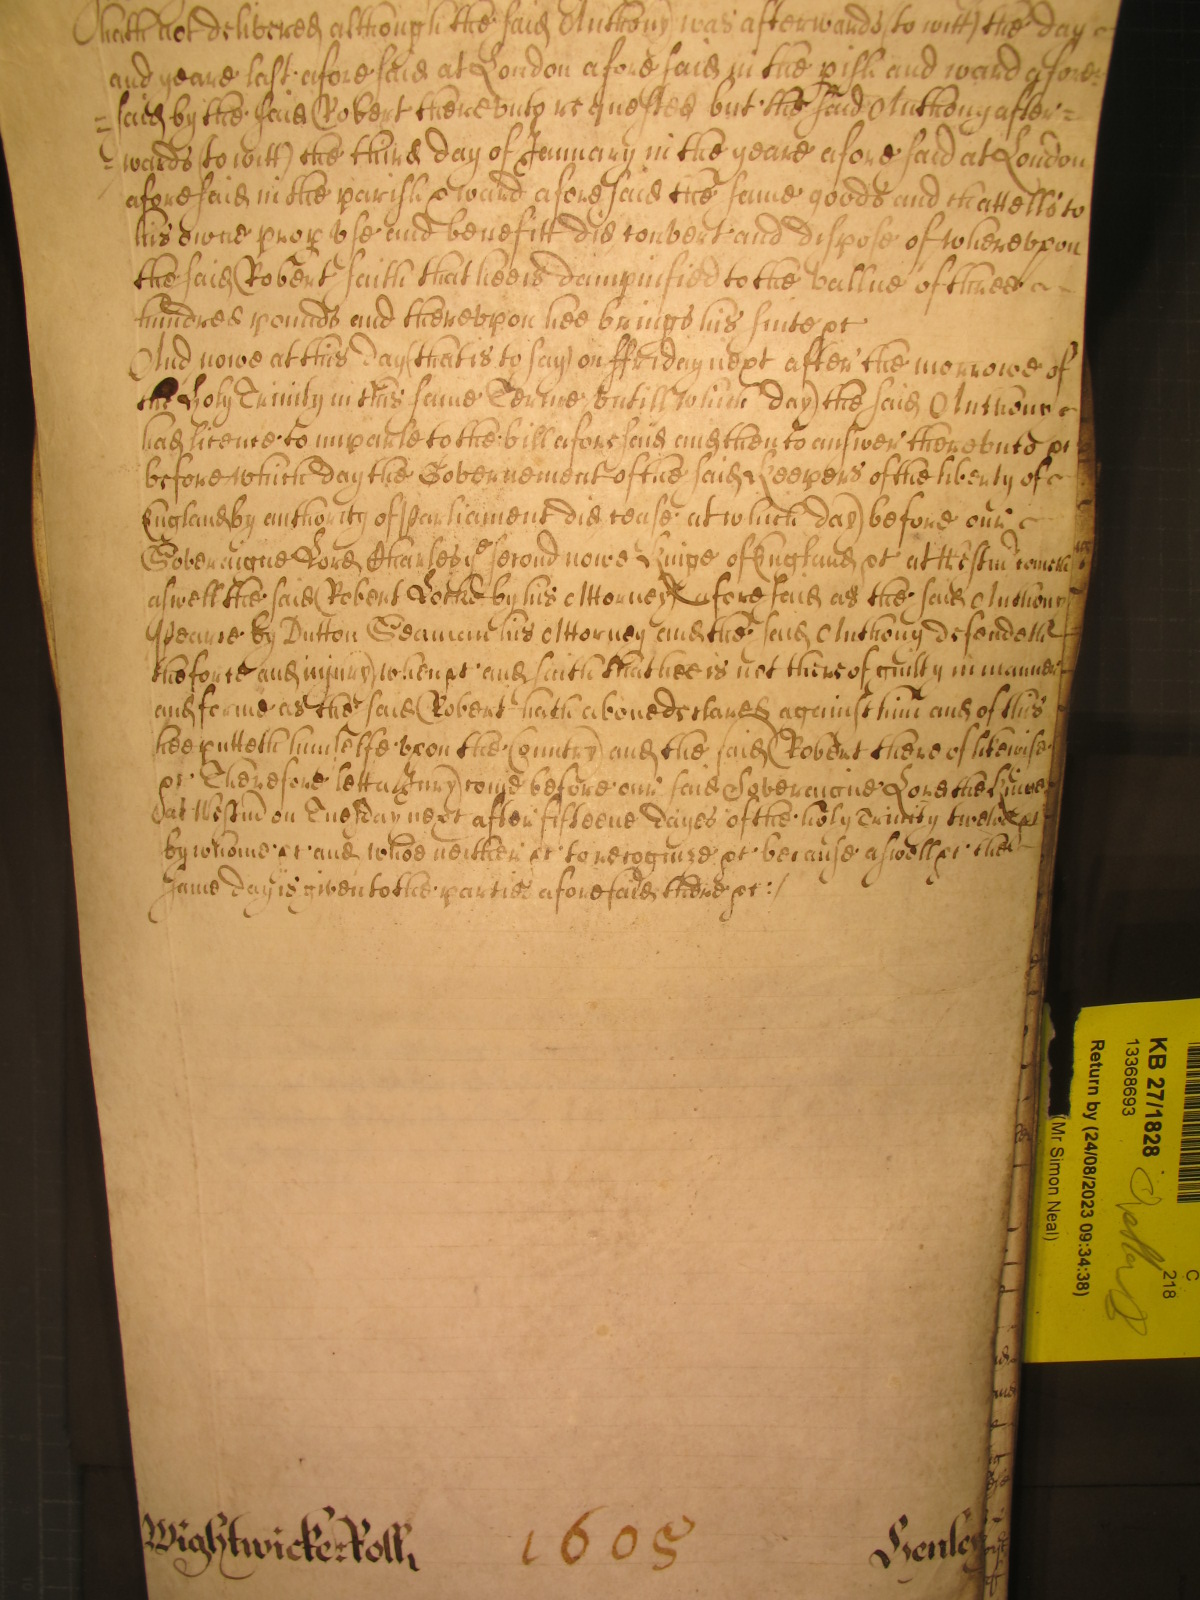 hath not delivered although the said Anthony was afterwards (to witt) the day
and yeare last aforesaid at London aforesaid in the pish and ward afore
=said by the said Robert therevnto requested but the said Anthony after=
=wards (to witt) the third day of January in the yeare aforesaid at London
aforesaid in the parish & ward aforesaid the same goods and chattells to
his owne prop vse and benefitt did convert and dispose of wherevpon
the said Robert saith that hee is dampnified to the vallue of three
hundred pounds and therevpon hee brings his suite &c
And nowe at this day (that is to say) on ffriday next after the morrowe of
the Holy Trinity in this same Terme vntill which day) the said Anthony
had licence to imparle to the bill aforesaid and then to answer therevnto &c
before which day the Governement of the said Keepers of the liberty of
England by authority of Parliament did cease at which day) before our
Soveraigne Lord Charles ye second nowe Kinge of England &c at Westm
aswell the said Robert Locke by his Attorney aforesaid as the said Anthony
Pearce by Dutton Seaman his Attorney and the said Anthony defendeth
the force and injury) when &c and saith that hee is not thereof guilty in manner
and forme as the said Robert hath above declared against him and of this
hee putteth himselfe vpon the Country) and the said Robert thereof likewise
&c Therefore lett a Jury) come before our said Soveraigne Lord the Kinge
at Westm on Tuesday next after fifteene dayes of the holy Trinity twelve &c
by whome &c and whoe neither &c to recognize &c because aswell &c the
same day is given to the parties aforesaid there &c :/
Wightwicke Roll
1605
Henley
KB 27/1828
13368693
Return by (24/08/2023 09:34:38)
(Mr Simon Neal)
C
218